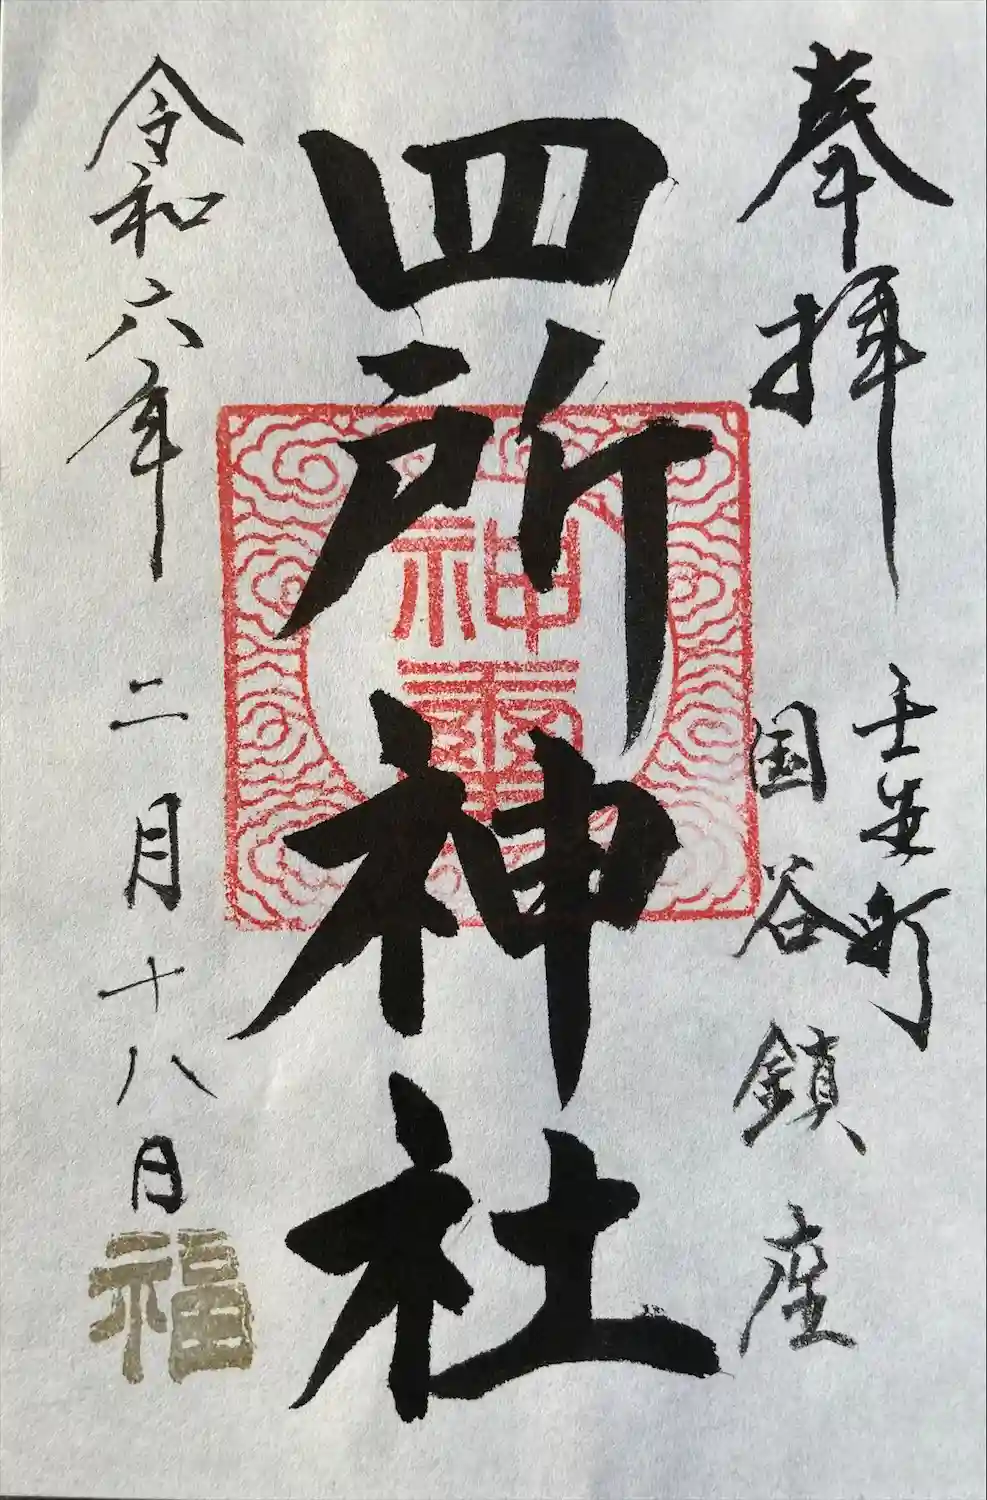 奉拝
壬生町
国谷鎮座
四所神社
神璽
令和六年二月十八日
福